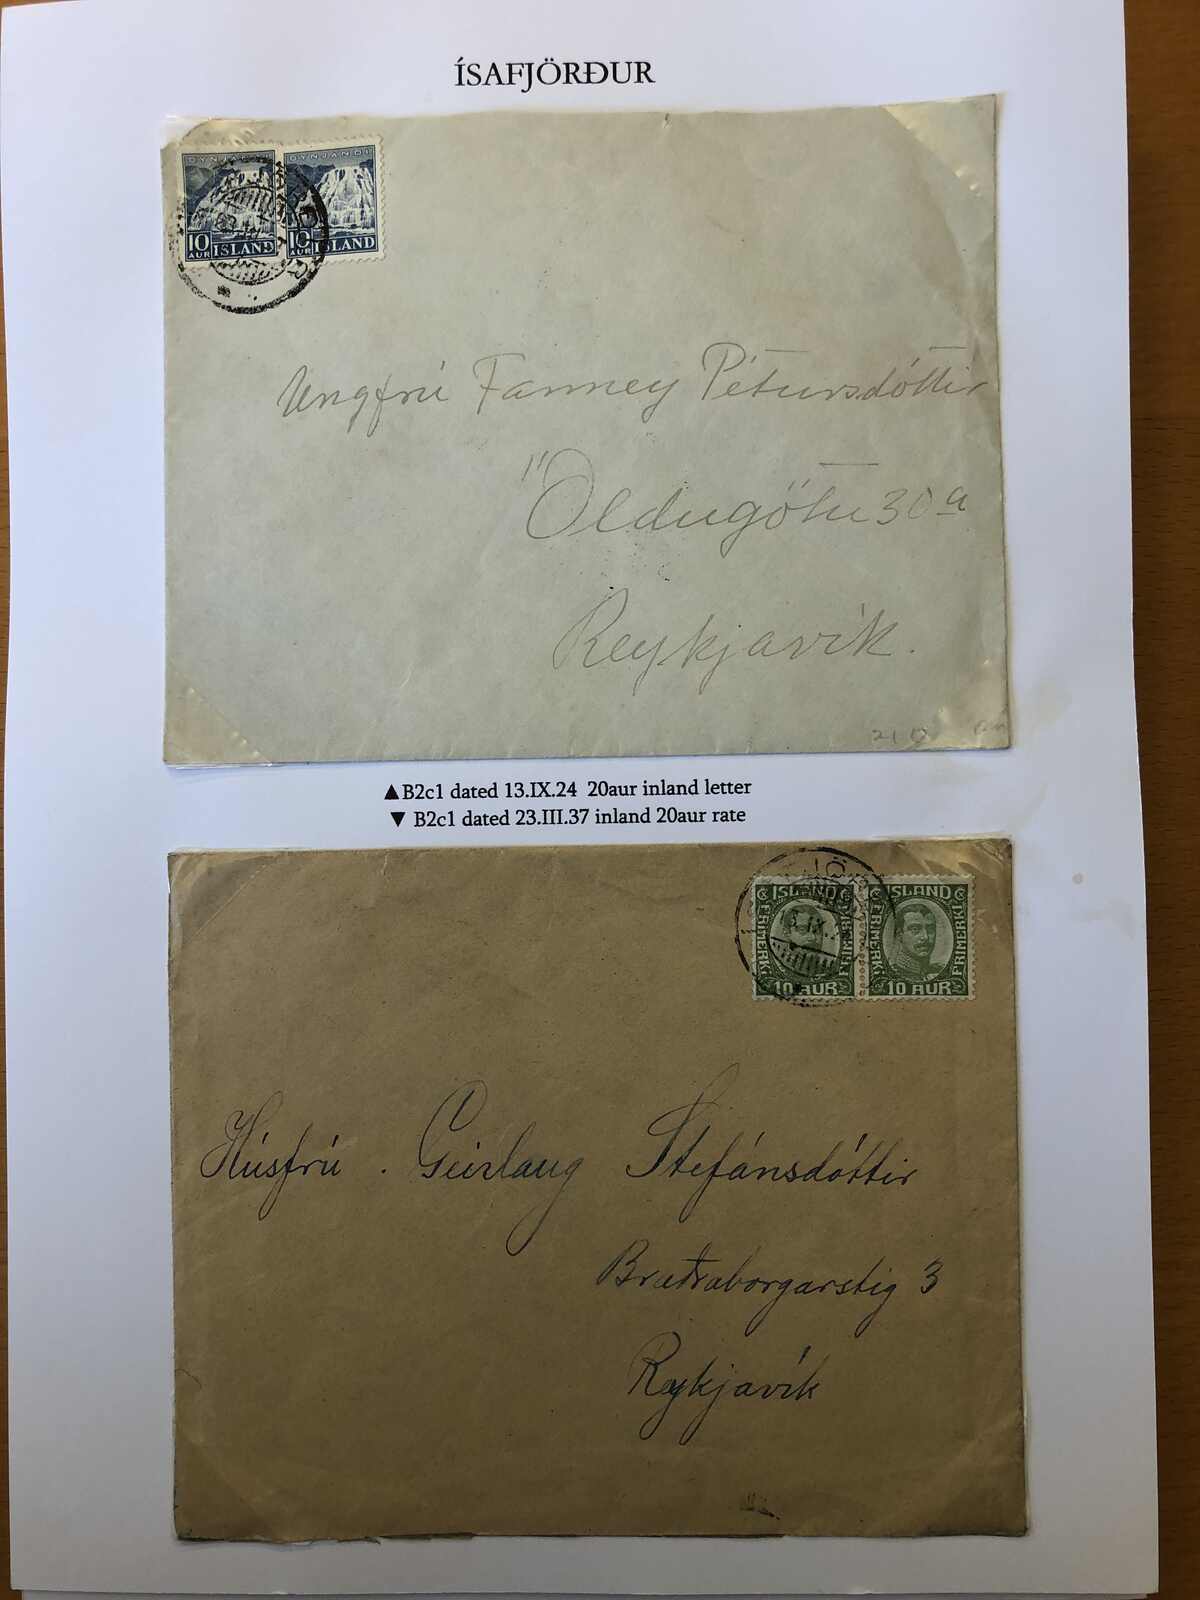 ÍSAFJÖRÐUR
DYNJANDI DYNJANDI
10 AUR ÍSLAND 10 AUR ÍSLAND
Ungfrú Fanney Pétursdóttir
Öldugötu 30 a
Reykjavík.
21
▲B2c1 dated 13.IX.24 20aur inland letter
▼ B2c1 dated 23.III.37 inland 20aur rate
ÍSLAND ÍSLAND
FRIMERKI FRIMERKI FRIMERKI FRIMERKI
13.IX.
10 AUR 10 AUR
Húsfrú. Geirlaug Stefánsdóttir
Bræðraborgarstig 3
Reykjavík